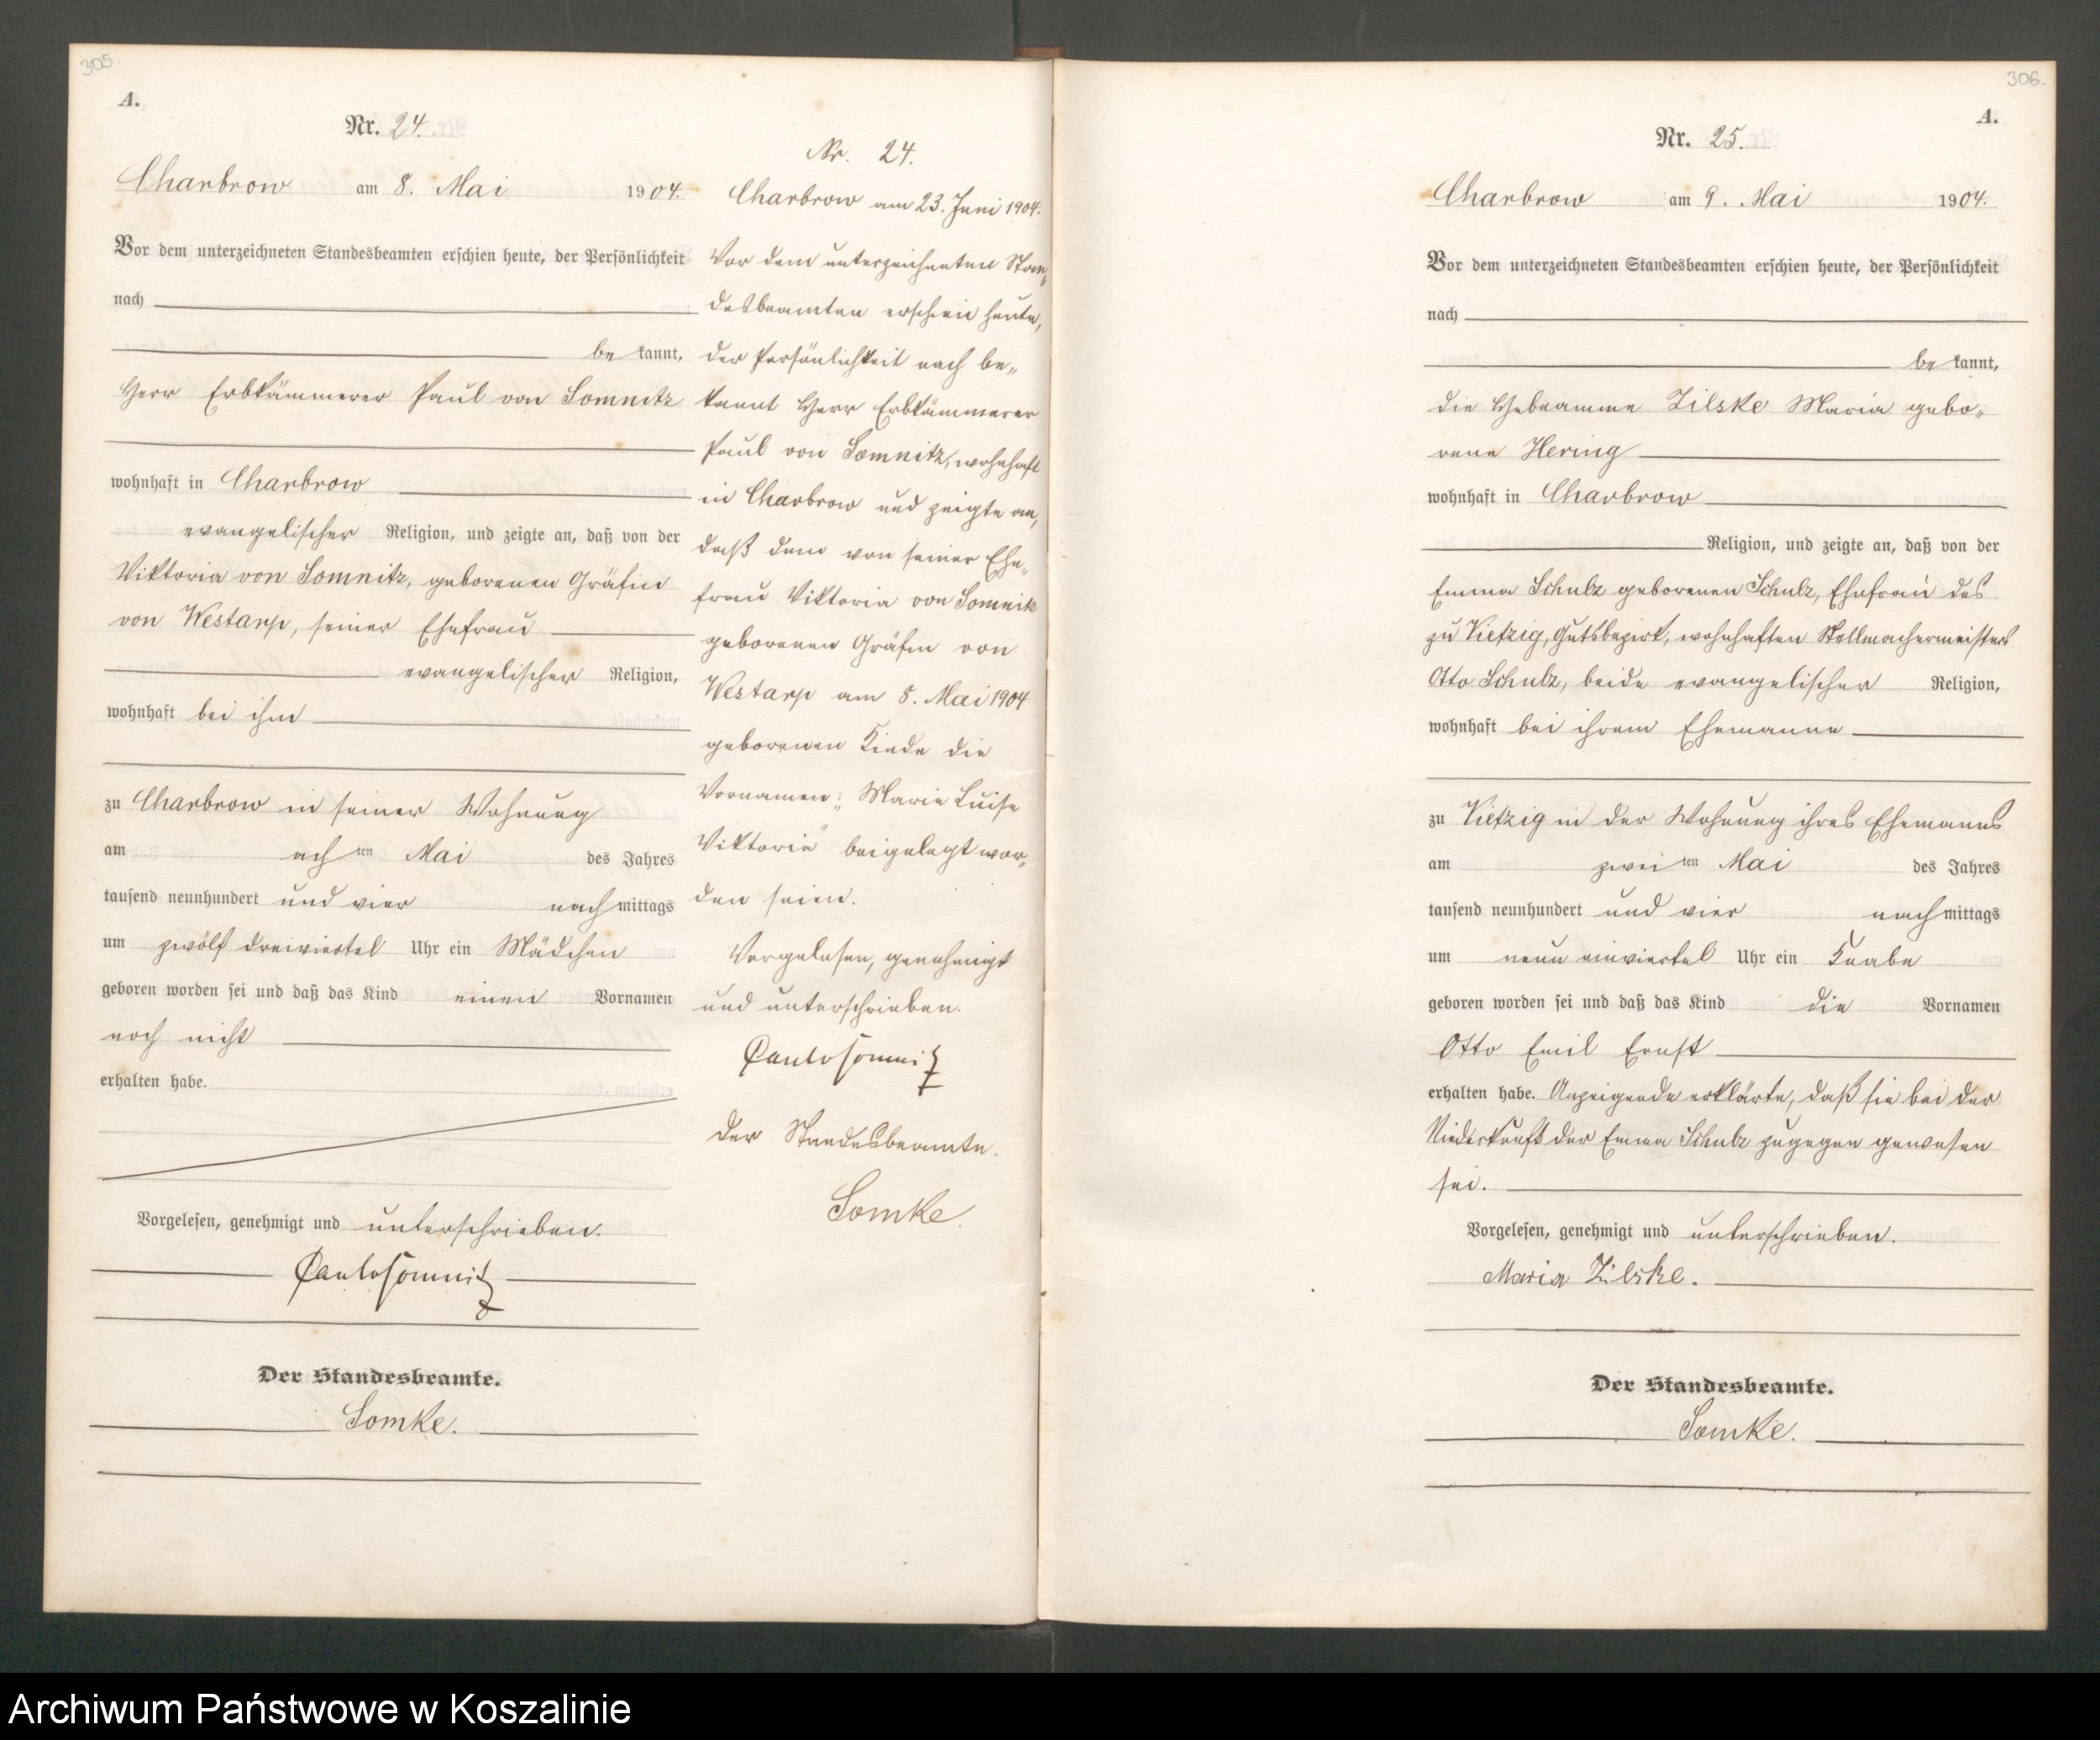 305
A.
Nr. 24.
Charbrow am 8. Mai 1904.
Vor dem unterzeichneten Standesbeamten erschien heute, der Persönlichkeit
nach
be kannt,
Herr Erbkämmerer Paul von Somnitz
wohnhaft in Charbrow
evangelischer Religion, und zeigte an, daß von der
Viktoria von Somnitz, geborenen Gräfin
von Westarp, seiner Ehefrau
evangelischer Religion,
wohnhaft bei ihm
zu Charbrow in seiner Wohnung
am ach ten Mai des Jahres
tausend neunhundert und vier nach mittags
um zwölf dreiviertel Uhr ein Mädchen
geboren worden sei und daß das Kind einen Vornamen
noch nicht
erhalten habe.
Vorgelesen, genehmigt und unterschrieben.
Paul v Somnitz
Der Standesbeamte.
Somke.
Nr. 24.
Charbrow am 23. Juni 1904.
Vor dem unterzeichneten Stan„
desbeamten erschien heute,
der Persönlichkeit nach be„
kannt Herr Erbkämmerer
Paul von Somnitz, wohnhaft
in Charbrow und zeigte an,
daß dem von seiner Ehe„
frau Viktoria von Somnitz
geborenen Gräfin von
Westarp am 8. Mai 1904
geborenen Kinde die
Vornamen: „Marie Luise
Viktoria“ beigelegt wor„
den seien.
Vorgelesen, genehmigt
und unterschrieben.
Paul v Somnitz
Der Standesbeamte.
Somke.
306.
A.
Nr. 25.
Charbrow am 9. Mai 1904.
Vor dem unterzeichneten Standesbeamten erschien heute, der Persönlichkeit
nach
be kannt,
die Hebeamme Zilske Maria gebo„
rene Hering
wohnhaft in Charbrow
Religion, und zeigte an, daß von der
Emma Schulz geborenen Schulz, Ehefrau des
zu Vietzig, Gutsbezirk, wohnhaften Stellmachermeisters
Otto Schulz, beide evangelischer Religion,
wohnhaft bei ihrem Ehemanne
zu Vietzig in der Wohnung ihres Ehemanns
am zwei ten Mai des Jahres
tausend neunhundert und vier nach mittags
um neun einviertel Uhr ein Knabe
geboren worden sei und daß das Kind die Vornamen
Otto Emil Ernst
erhalten habe. Anzeigende erklärte, daß sie bei der
Niederkunft der Emma Schulz zugegen gewesen
sei.
Vorgelesen, genehmigt und unterschrieben.
Maria Zilske.
Der Standesbeamte.
Somke.
Archiwum Państwowe w Koszalinie